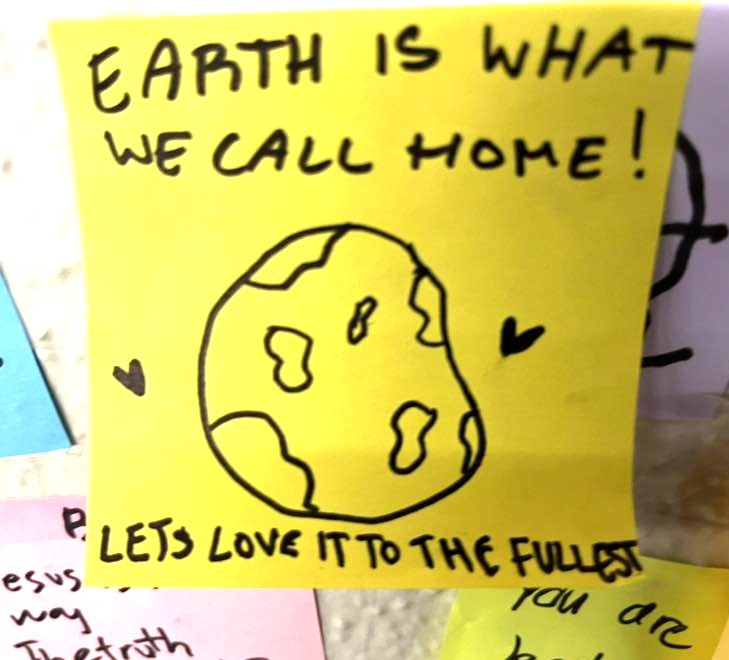 EARTH IS WHAT
WE CALL HOME!
LETS LOVE IT TO THE FULLEST
esus
way
The truth
You are